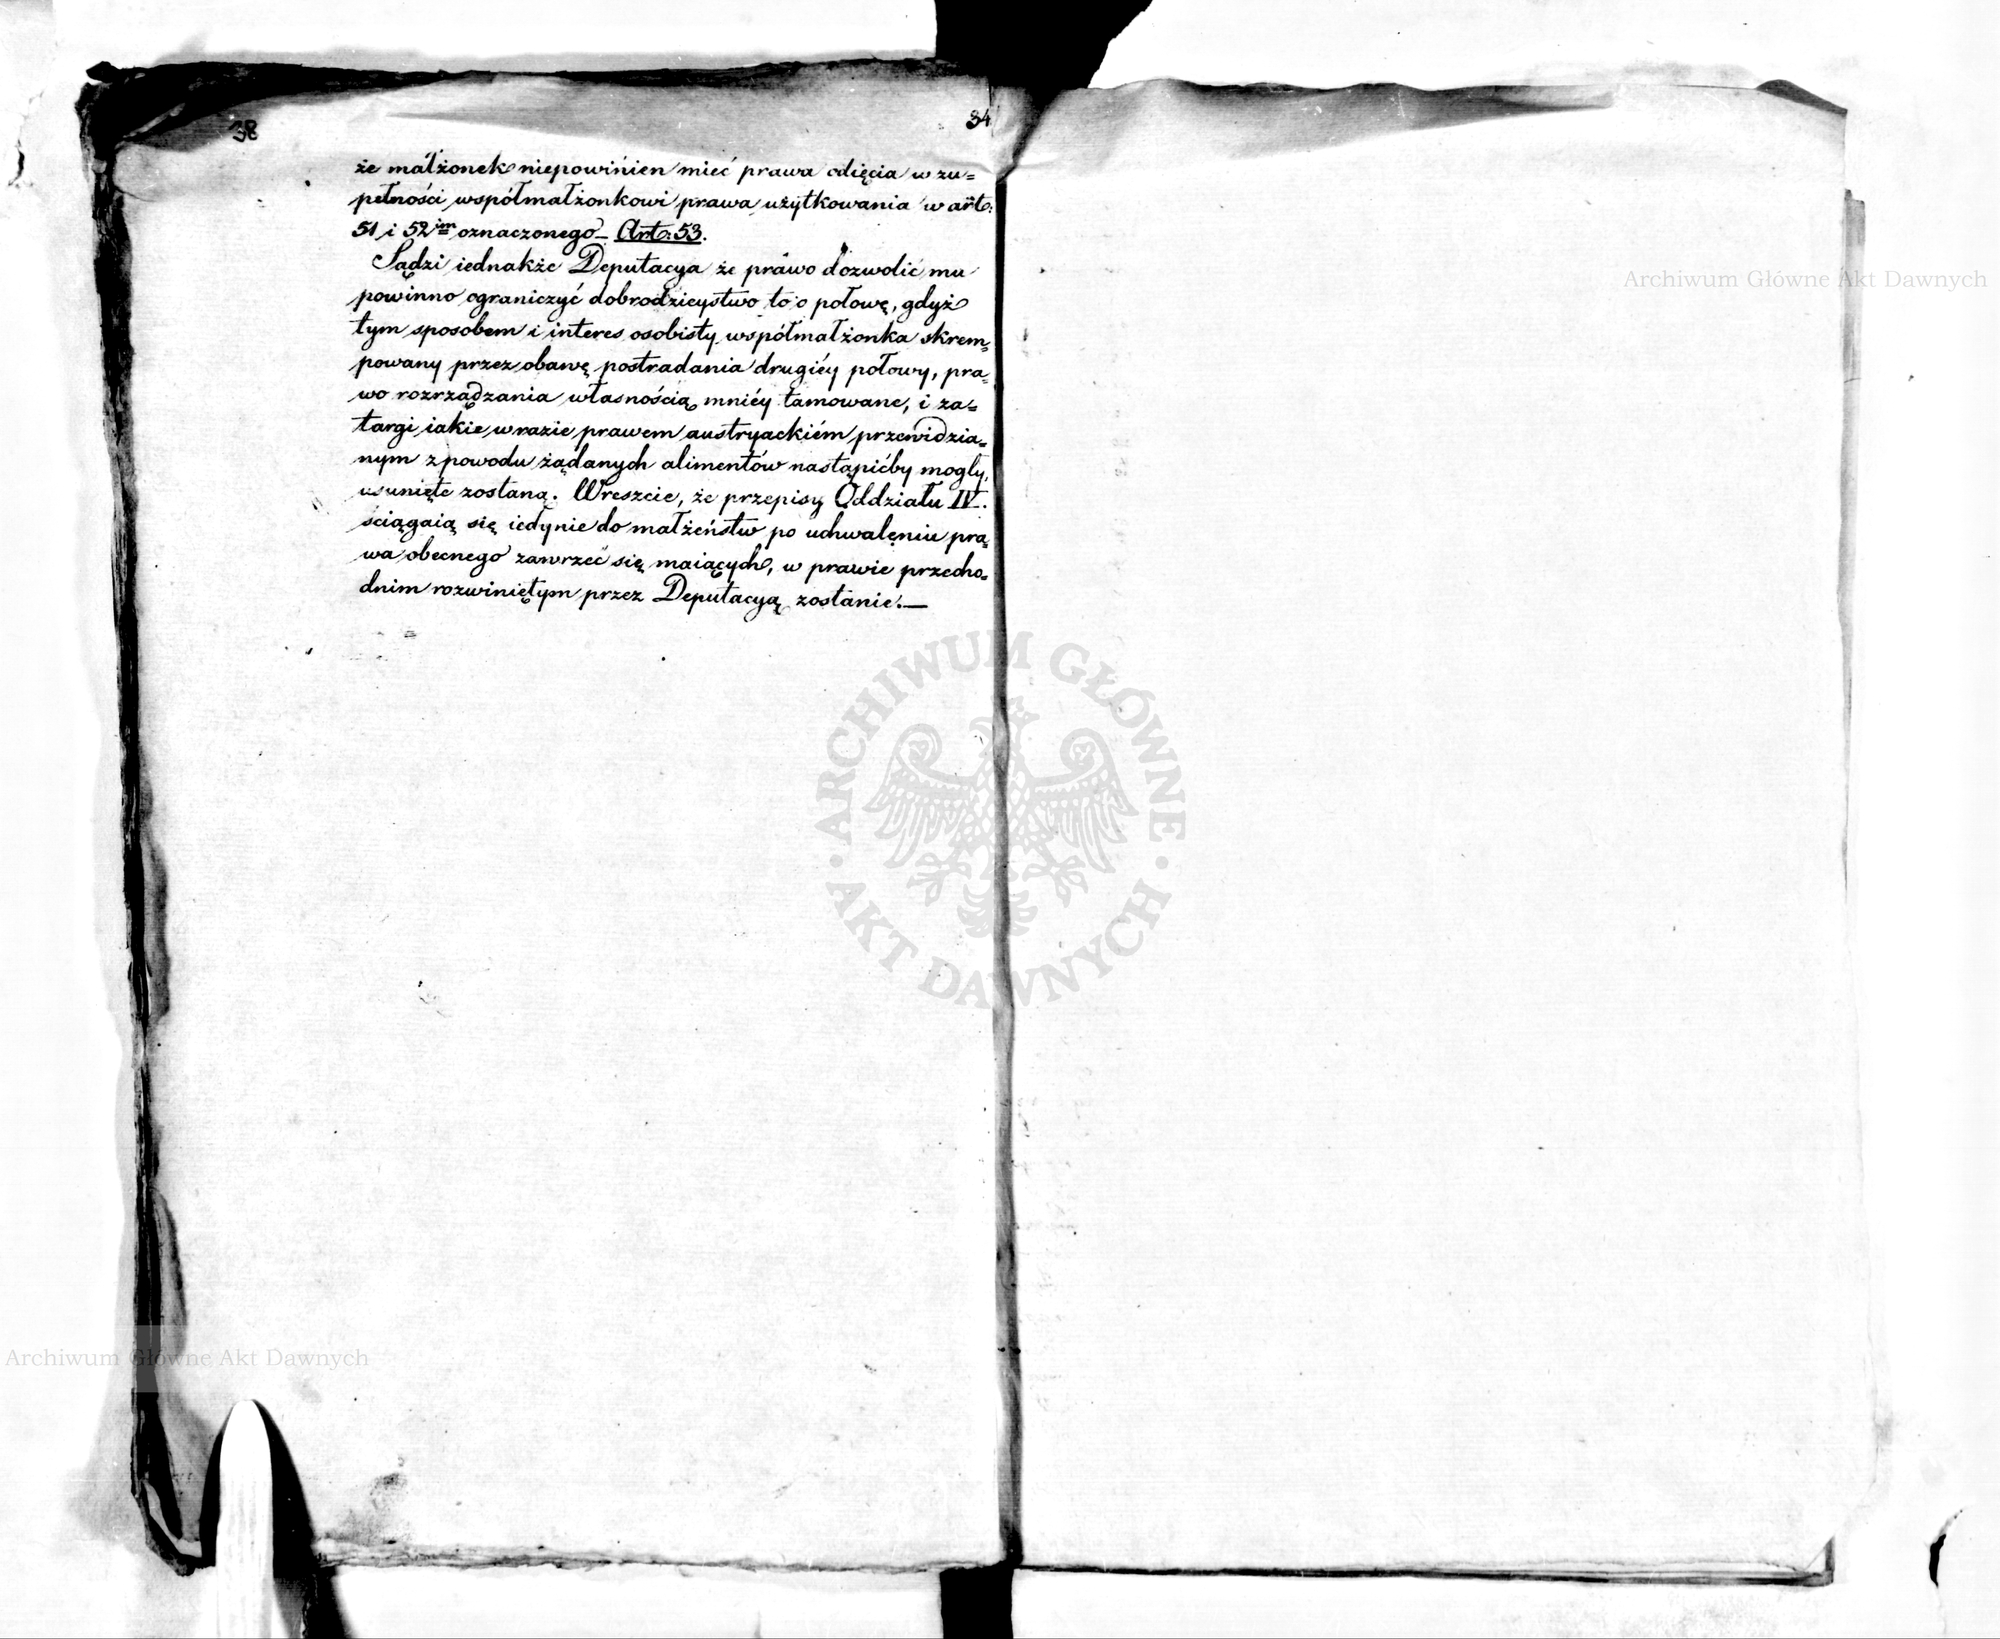 38
34
że małżonek niepowinien mieć prawa odięcia w zu=
pełności współmałżonkowi prawa użytkowania w art:
51 i 52im oznaczonego – Art: 53.
Sądzi iednakże Deputacya że prawo dozwolić mu
powinno ograniczyć dobrodzieystwo to o połowę, gdyż
tym sposobem i interes osobisty współmałżonka skrem=
powany przez obawę postradania drugiéy połowy, pra=
wo rozrządzania własnością mniéy tamowane, i za=
targi iakie w razie prawem austryackiém przewidzia=
nym z powodu żądanych alimentów nastąpićby mogły,
usunięte zostaną. Wreszcie, że przepisy Oddziału IV.
ściągaią się iedynie do małżeństw po uchwaleniu pra=
wa obecnego zawrzeć się maiących, w prawie przecho=
dnim rozwiniętym przez Deputacyą zostanie. –
Archiwum Główne Akt Dawnych
ARCHIWUM GŁÓWNE
AKT DAWNYCH
Archiwum Główne Akt Dawnych